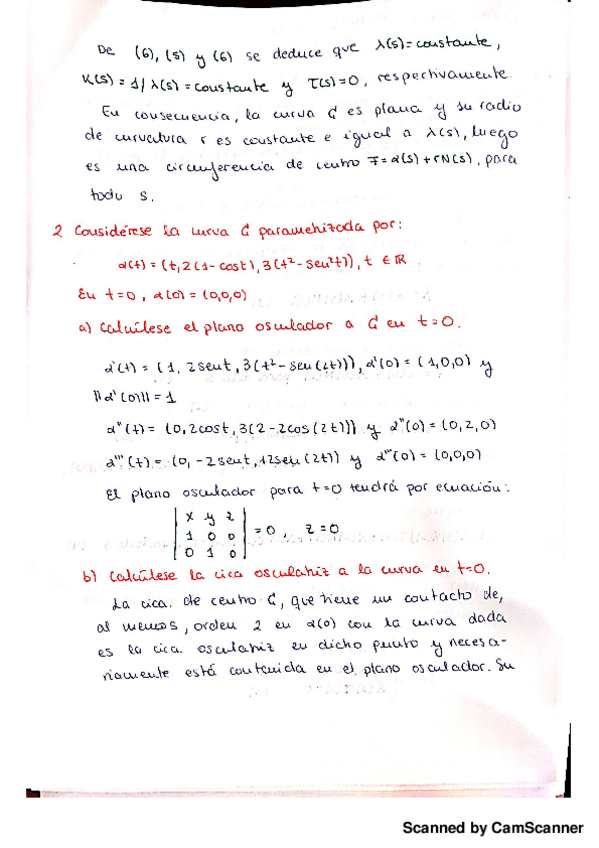 De (6), (5) y (6) se deduce que λ(s)=constante,
K(s) = 1/λ(s) = constante y τ(s)=0, respectivamente.
En consecuencia, la curva C es plana y su radio
de curvatura r es constante e igual a λ(s), luego
es una circunferencia de centro F=α(s)+rN(s), para
todo s.
2 Considérese la curva C parametrizada por:
α(t) = (t, 2(1-cost), 3(t²-sen²t)), t ∈ ℝ
En t=0, α(0) = (0,0,0)
a) Calcúlese el plano osculador a C en t=0.
α'(t) = (1, 2sent, 3(2t-sen(2t))), α'(0) = (1,0,0) y
||α'(0)|| = 1
α''(t) = (0, 2cost, 3(2-2cos(2t))) y α''(0) = (0,2,0)
α'''(t) = (0, -2sent, 12sen(2t)) y α'''(0) = (0,0,0)
El plano osculador para t=0 tendrá por ecuación:
| x y z |
| 1 0 0 | = 0, z=0
| 0 1 0 |
b) Calcúlese la cica osculatriz a la curva en t=0.
La cica. de centro C, que tiene un contacto de,
al menos, orden 2 en α(0) con la curva dada
es la cica. osculatriz en dicho punto y necesa-
riamente está contenida en el plano osculador. Su
Scanned by CamScanner